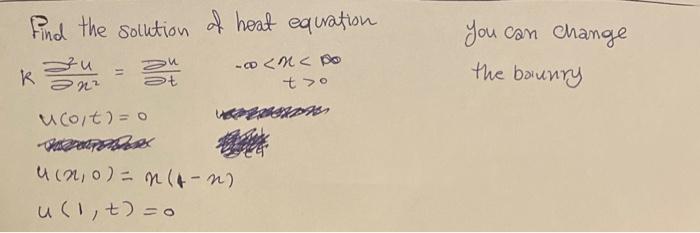 Find the solution of heat equation
k ∂²u/∂x² = ∂u/∂t   -∞ < x < ∞
t > 0
u(0,t) = 0
u(x,0) = x(1-x)
u(1,t) = 0
you can change
the baunry